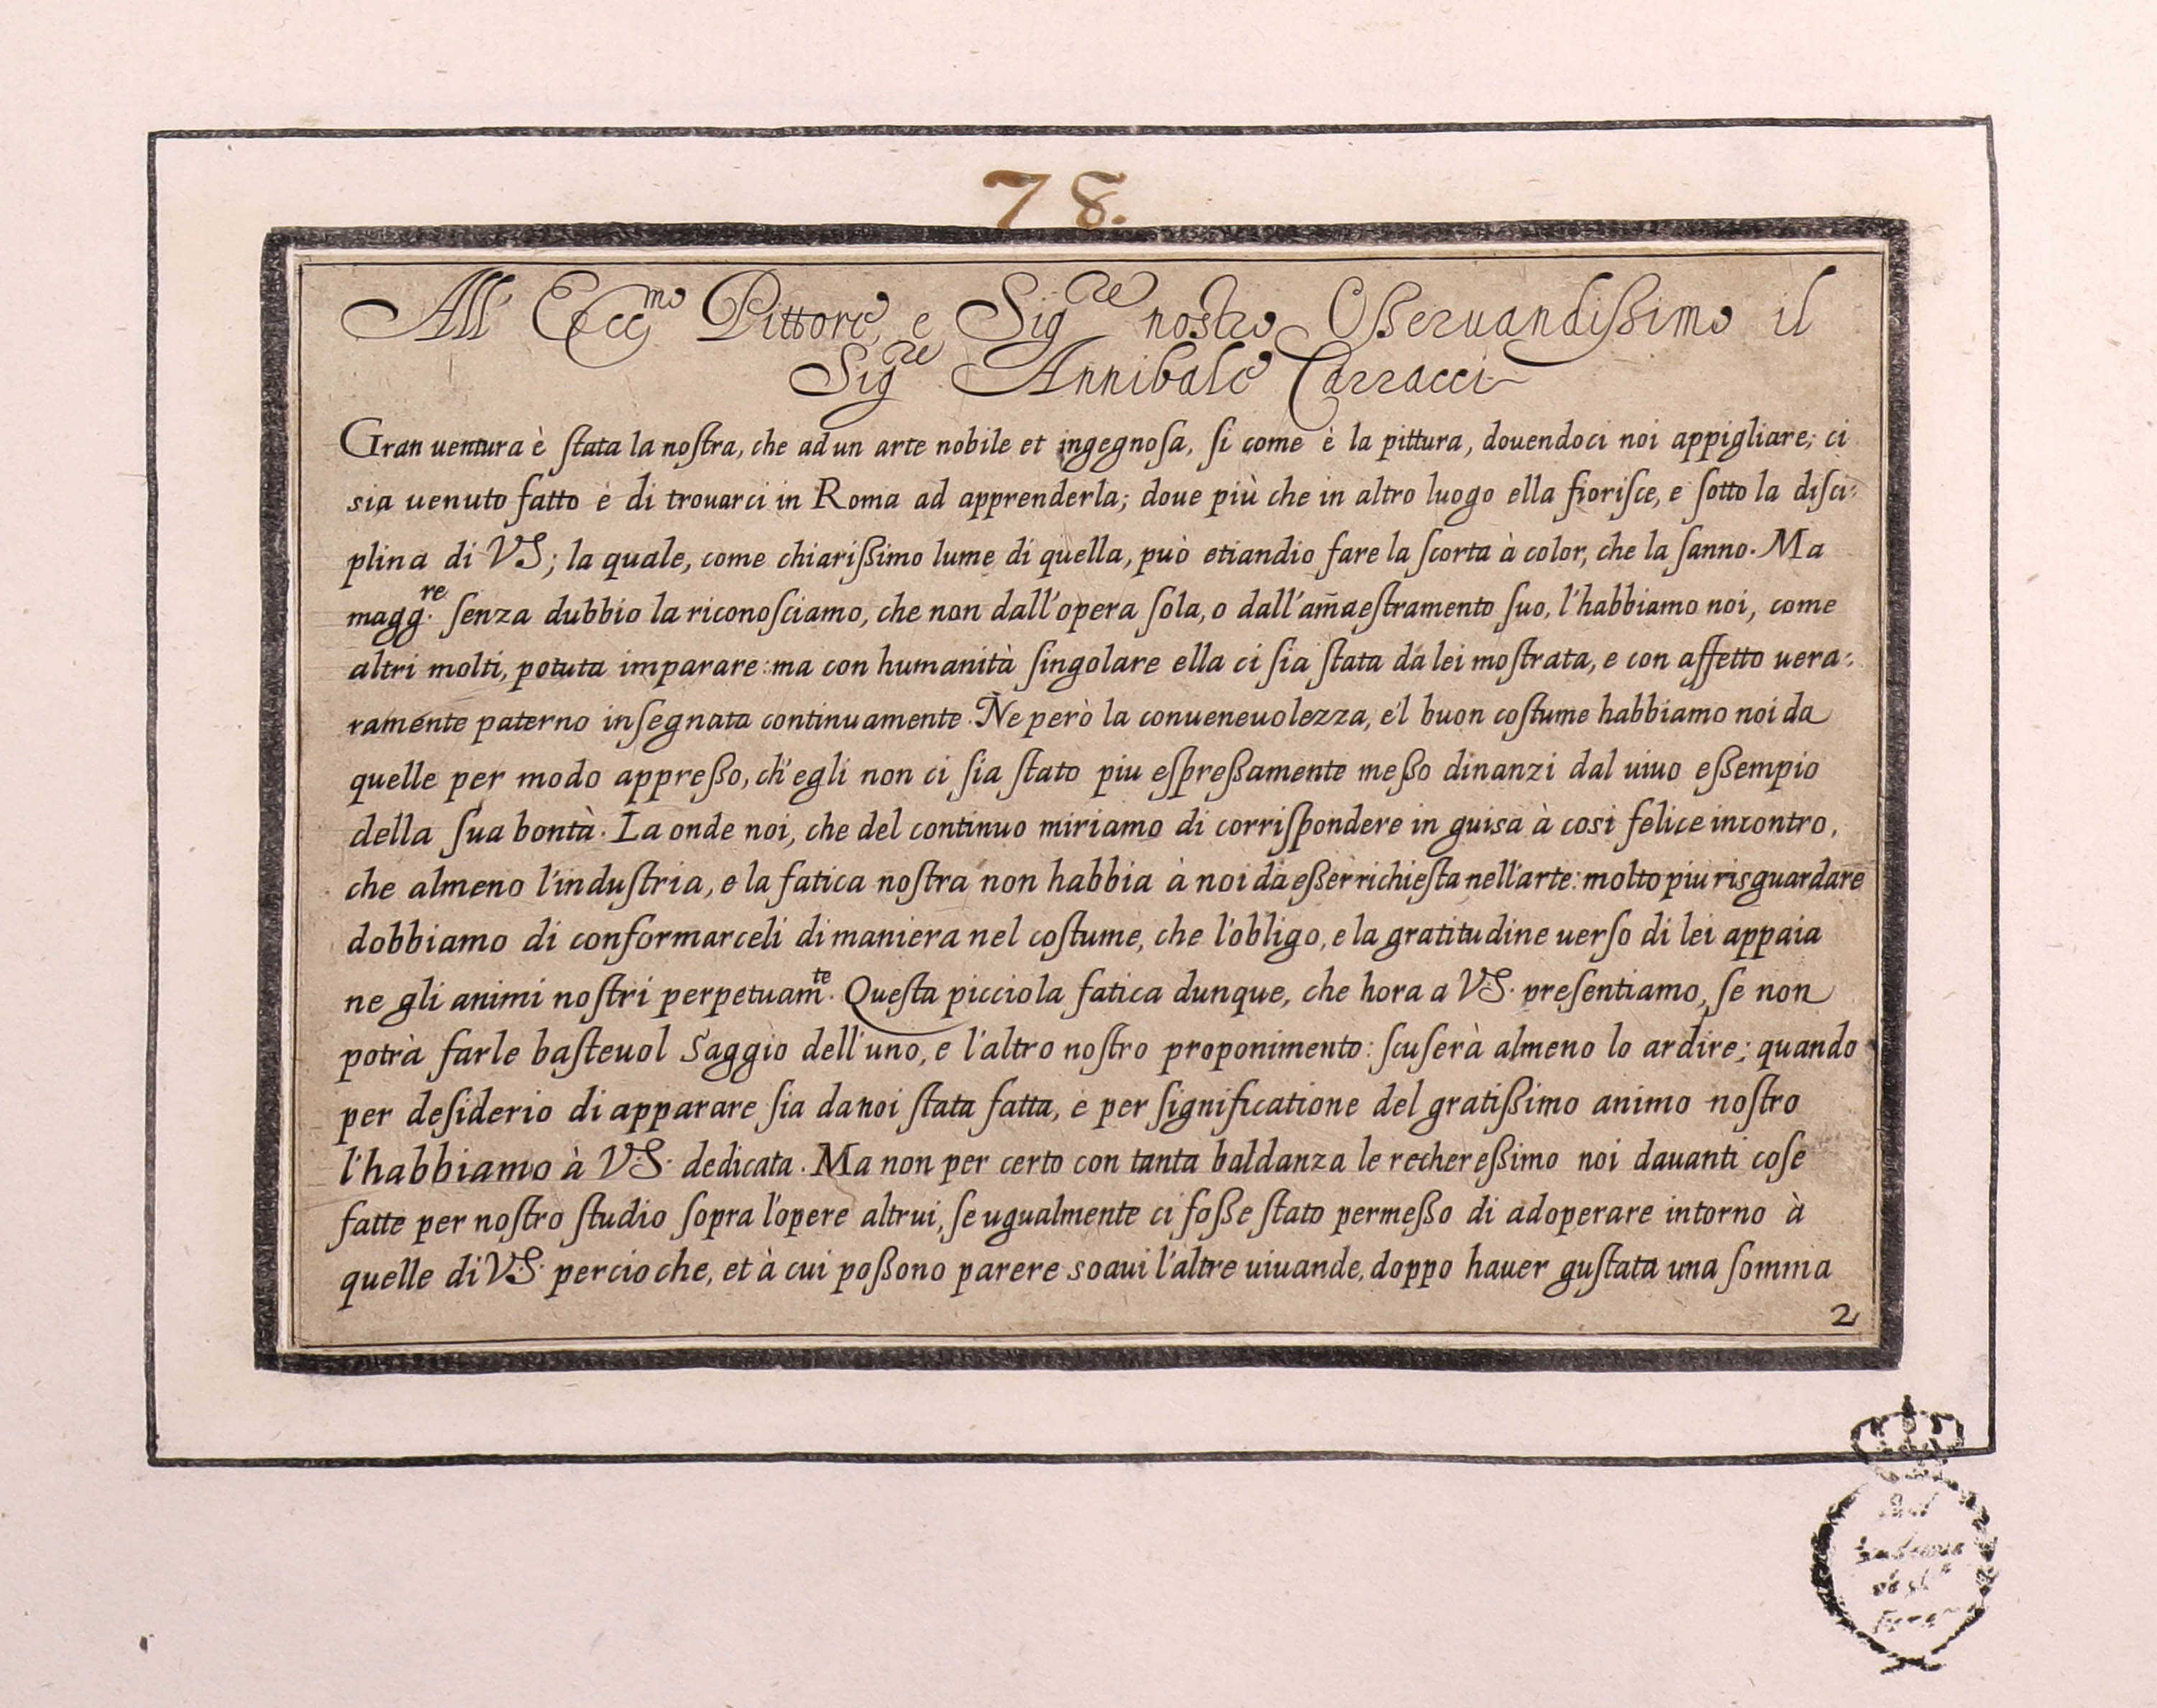 78.
All' Ecc.mo Pittore, e Sig.re nostro Osseruandissimo il
Sig.re Annibale Carracci
Gran uentura è stata la nostra, che ad un arte nobile et ingegnosa, si come è la pittura, douendoci noi appigliare; ci
sia uenuto fatto e di trouarci in Roma ad apprenderla; doue più che in altro luogo ella fiorisce, e sotto la disci:
plina di VS; la quale, come chiarissimo lume di quella, può etiandio fare la scorta à color, che la sanno. Ma
magg.re senza dubbio la riconosciamo, che non dall'opera sola, o dall'am̃aestramento suo, l'habbiamo noi, come
altri molti, potuta imparare: ma con humanità singolare ella ci sia stata da lei mostrata, e con affetto uera:
ramente paterno insegnata continuamente. Ne però la conueneuolezza, e'l buon costume habbiamo noi da
quelle per modo appresso, ch'egli non ci sia stato piu espressamente messo dinanzi dal uiuo essempio
della sua bontà. La onde noi, che del continuo miriamo di corrispondere in guisa à cosi felice incontro,
che almeno l'industria, e la fatica nostra non habbia à noi da esser richiesta nell'arte: molto piu risguardare
dobbiamo di conformarceli di maniera nel costume, che l'obligo, e la gratitudine uerso di lei appaia
ne gli animi nostri perpetuam.te Questa picciola fatica dunque, che hora a V.S. presentiamo, se non
potrà farle basteuol Saggio dell'uno, e l'altro nostro proponimento: scuserà almeno lo ardire; quando
per desiderio di apparare sia da noi stata fatta, e per significatione del gratissimo animo nostro
l'habbiamo à V.S. dedicata. Ma non per certo con tanta baldanza le rechereßimo noi dauanti cose
fatte per nostro studio sopra l'opere altrui, se ugualmente ci fosse stato permesso di adoperare intorno à
quelle di V.S. percioche, et à cui possono parere soaui l'altre uiuande, doppo hauer gustata una somma
2